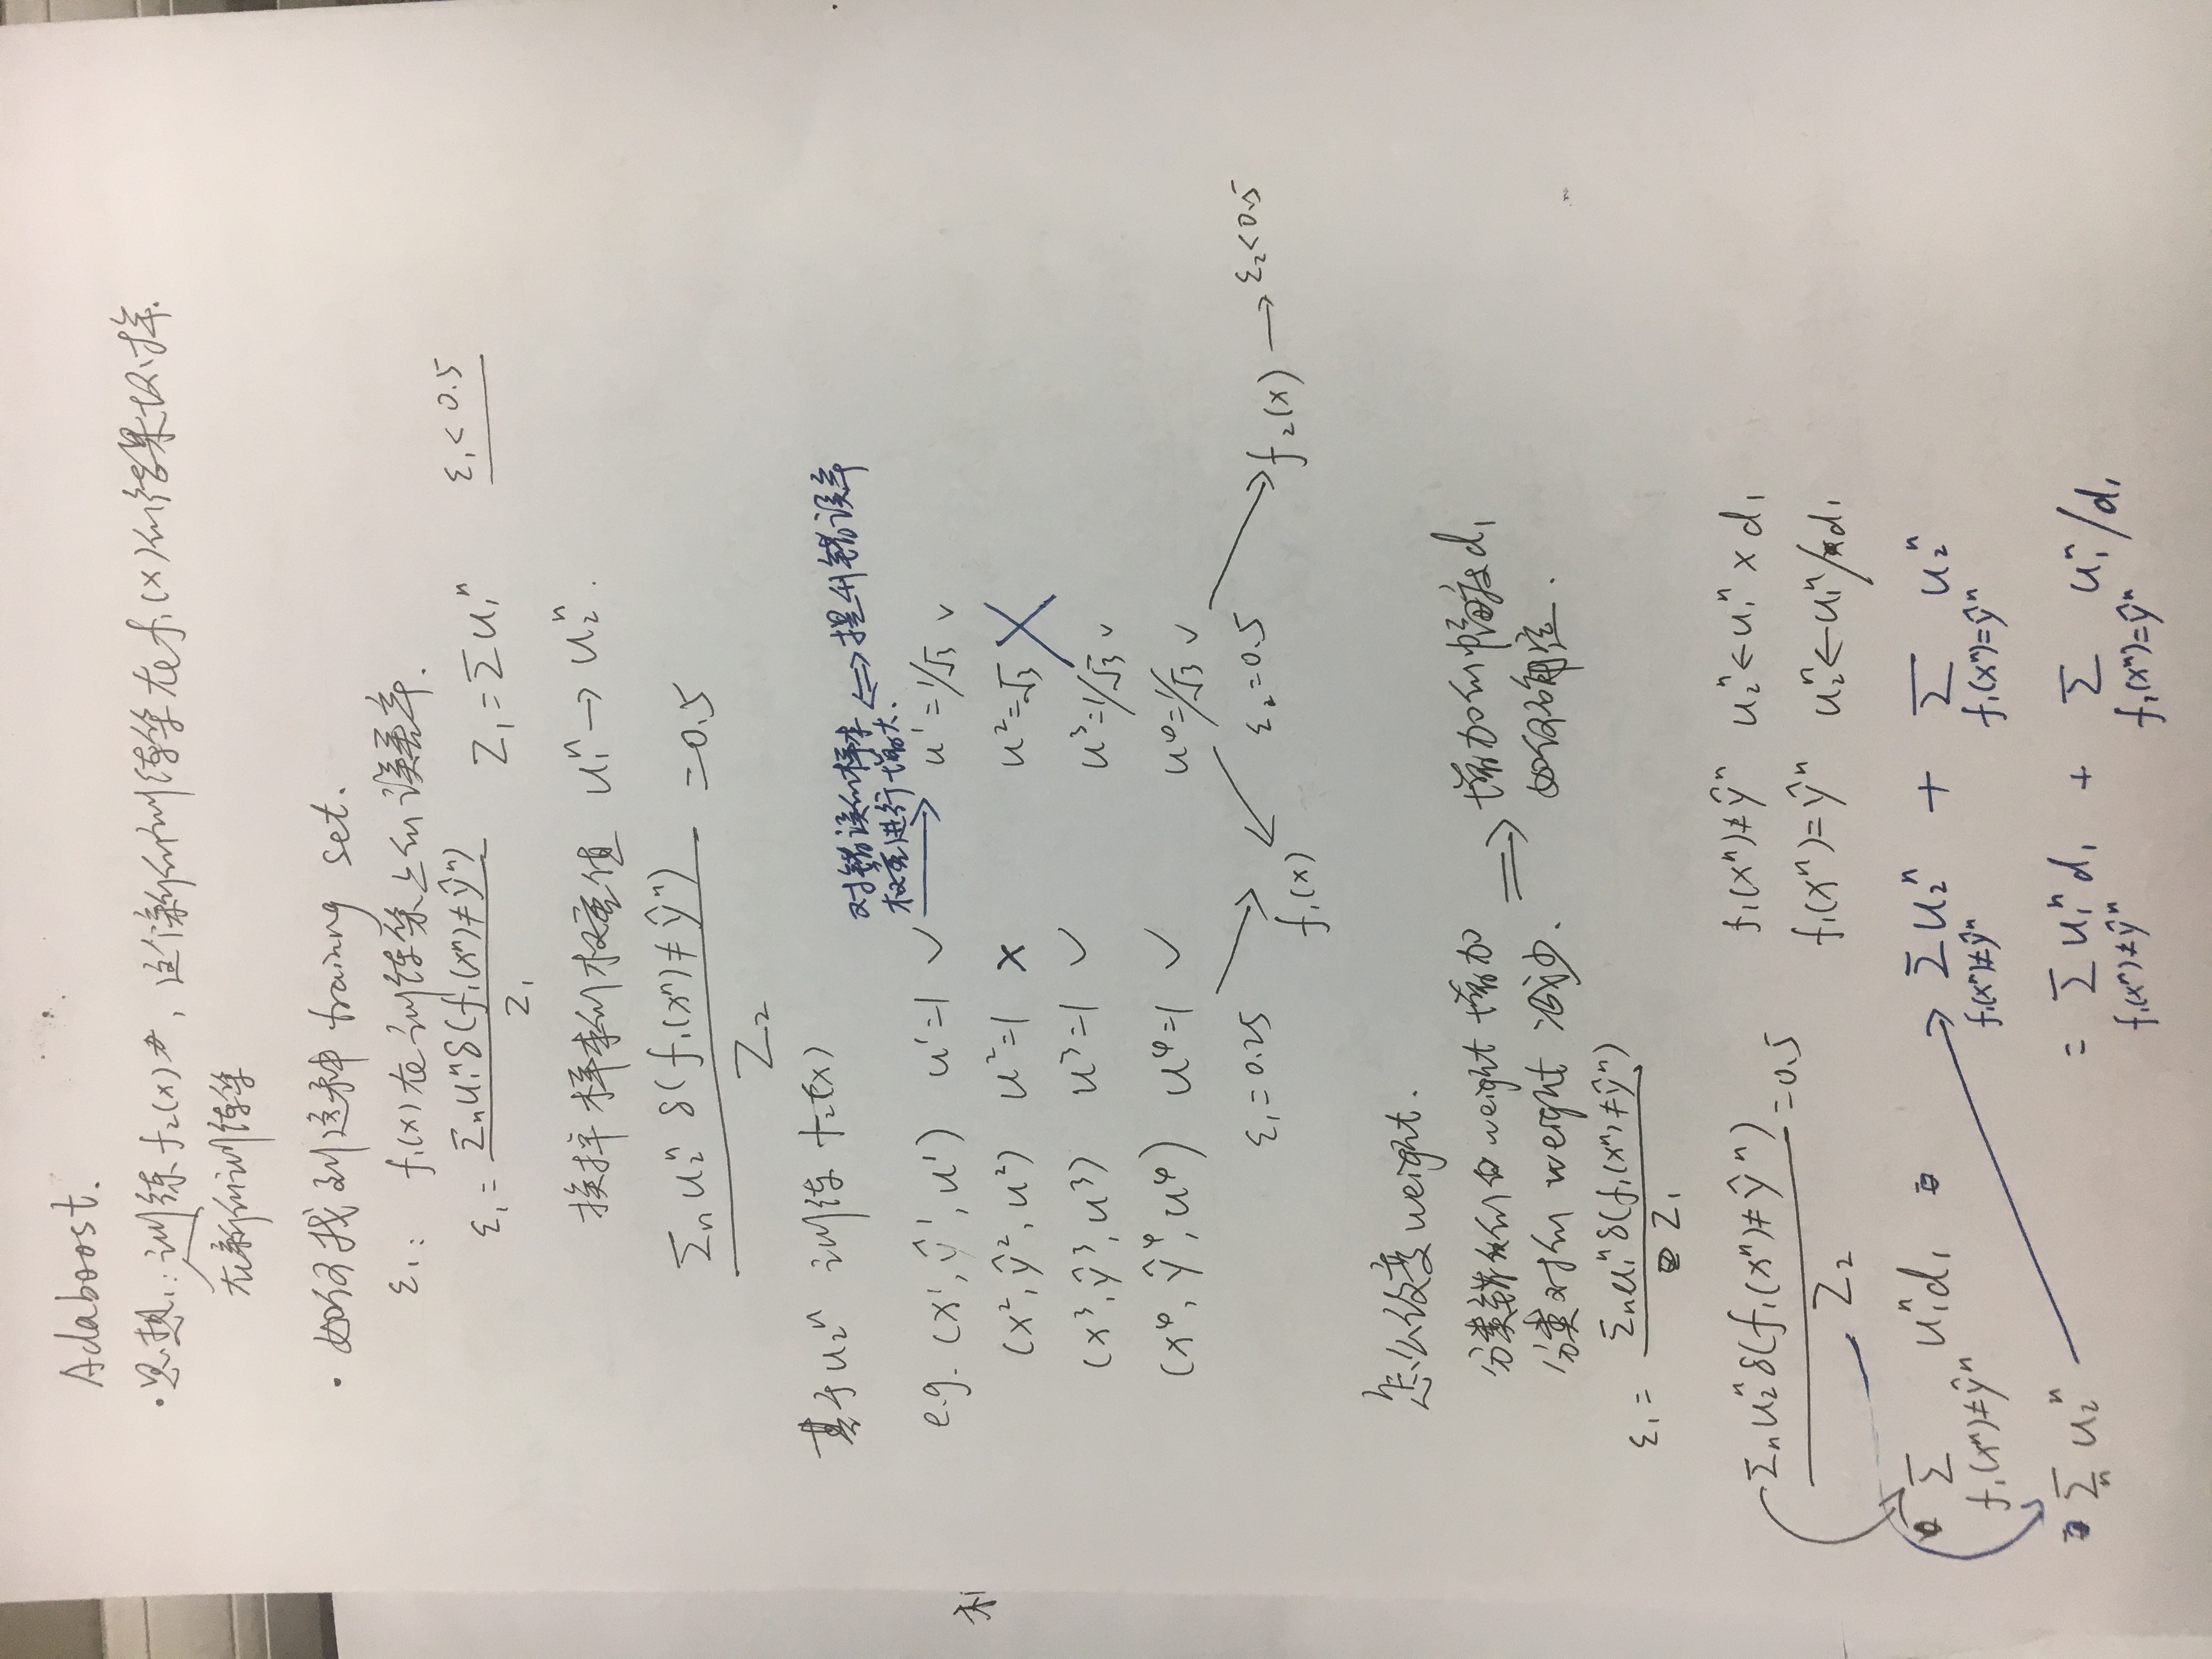 Adaboost.
·思想:训练f₂(x),这个新的训练集在f₁(x)的结果坏掉.
在新的训练集
·如何找到这种 training set.
ε₁: f₁(x)在训练集上的误差率.
ε₁ = Σₙu₁ⁿδ(f₁(xⁿ)≠ŷⁿ) / Z₁ Z₁=Σu₁ⁿ ε₁<0.5
换掉样本的权重值 u₁ⁿ→u₂ⁿ.
Σₙu₂ⁿ δ(f₁(xⁿ)≠ŷⁿ) / Z₂ =0.5
基于u₂ⁿ 训练 f₂(x)
对错误的样本 ⇔ 提升错误率
权重进行增大.
e.g. (x¹,ŷ¹,u¹) u¹=1 ✓ → u¹=1/√3 ✓
(x²,ŷ²,u²) u²=1 × u²=√3 ×
(x³,ŷ³,u³) u³=1 ✓ u³=1/√3 ✓
(x⁴,ŷ⁴,u⁴) u⁴=1 ✓ u⁴=1/√3 ✓
ε₁=0.25 f₁(x) ε₂=0.5 f₂(x) → ε₂<0.5
怎么改变weight.
分类错误的 weight 增加 ⇒ 增加的幅度d₁
分类对的 weight 减少. 如何确定.
ε₁ = Σₙu₁ⁿδ(f₁(xⁿ)≠ŷⁿ) / Z₁
Σₙu₂ⁿδ(f₁(xⁿ)≠ŷⁿ) / Z₂ =0.5 f₁(xⁿ)≠ŷⁿ u₂ⁿ←u₁ⁿ×d₁
f₁(xⁿ)=ŷⁿ u₂ⁿ←u₁ⁿ/d₁
Σ u₁ⁿd₁ Σu₂ⁿ + Σ u₂ⁿ
f₁(xⁿ)≠ŷⁿ f₁(xⁿ)≠ŷⁿ f₁(xⁿ)=ŷⁿ
Σₙ u₂ⁿ = Σu₁ⁿd₁ + Σ u₁ⁿ/d₁
f₁(xⁿ)≠ŷⁿ f₁(xⁿ)=ŷⁿ